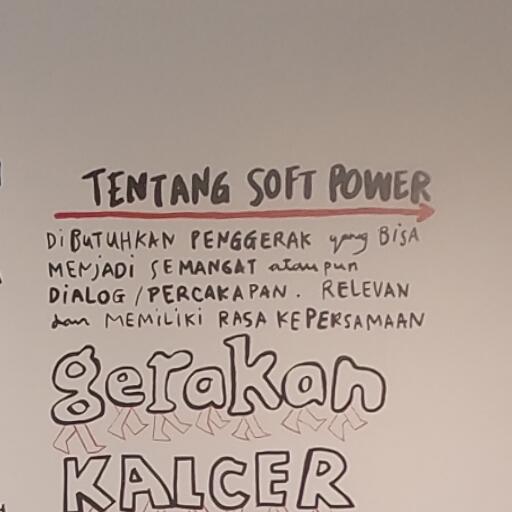 TENTANG SOFT POWER
DiBUTUHKAN PENGGERAK yang BISA
MENJADI SEMANGAT ataupun
DiALOG / PERCAKAPAN. RELEVAN
dan MEMILIKI RASA KEPERSAMAAN
gerakan
KALCER